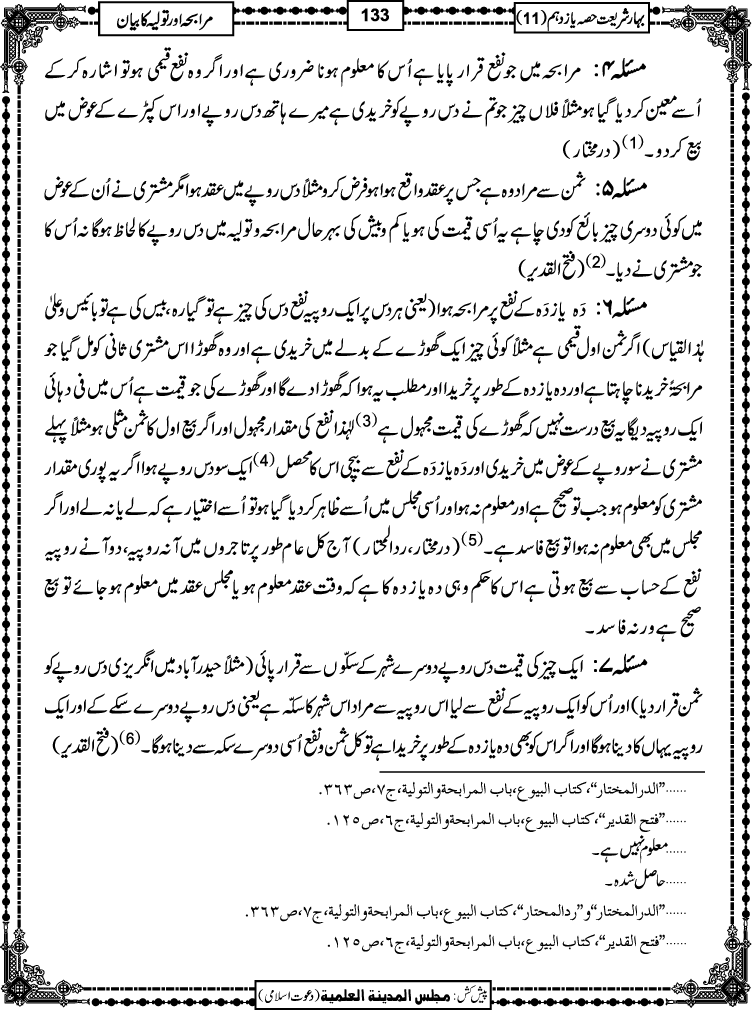 بہارِ شریعت حصہ یازدہم (11)
133
مرابحہ اور تولیہ کا بیان
مسئلہ ۴: مرابحہ میں جو نفع قرار پایا ہے اُس کا معلوم ہونا ضروری ہے اور اگر وہ نفع قیمی ہو تو اشارہ کرکے
اُسے معین کر دیا گیا ہو مثلاً فلاں چیز جو تم نے دس روپے کو خریدی ہے میرے ہاتھ دس روپے اور اس کپڑے کے عوض میں
بیع کر دو۔(1) (درمختار)
مسئلہ ۵: ثمن سے مراد وہ ہے جس پر عقد واقع ہوا ہو فرض کرو مثلاً دس روپے میں عقد ہوا مگر مشتری نے اُن کے عوض
میں کوئی دوسری چیز بائع کو دی چاہے یہ اُسی قیمت کی ہو یا کم و بیش کی بہر حال مرابحہ و تولیہ میں دس روپے کا لحاظ ہوگا نہ اُس کا
جو مشتری نے دیا۔(2) (فتح القدیر)
مسئلہ ۶: دَہ یازدَہ کے نفع پر مرابحہ ہوا (یعنی ہر دس پر ایک روپیہ نفع دس کی چیز ہے تو گیارہ، بیس کی ہے تو بائیس وعلیٰ
ہذا القیاس) اگر ثمن اول قیمی ہے مثلاً کوئی چیز ایک گھوڑے کے بدلے میں خریدی ہے اور وہ گھوڑا اس مشتری ثانی کو مل گیا جو
مرابحۃً خریدنا چاہتا ہے اور دہ یازدہ کے طور پر خریدا اور مطلب یہ ہوا کہ گھوڑا دے گا اور گھوڑے کی جو قیمت ہے اُس میں فی دہائی
ایک روپیہ دیگا یہ بیع درست نہیں کہ گھوڑے کی قیمت مجہول ہے(3) لہٰذا نفع کی مقدار مجہول اور اگر بیع اول کا ثمن مثلی ہو مثلاً پہلے
مشتری نے سو روپے کے عوض میں خریدی اور دَہ یازدَہ کے نفع سے بیچی اس کا محصل(4) ایک سو دس روپے ہوا اگر یہ پوری مقدار
مشتری کو معلوم ہو جب تو صحیح ہے اور معلوم نہ ہو اور اُسی مجلس میں اُسے ظاہر کر دیا گیا ہو تو اُسے اختیار ہے کہ لے یا نہ لے اور اگر
مجلس میں بھی معلوم نہ ہوا تو بیع فاسد ہے۔(5) (درمختار، ردالمحتار) آج کل عام طور پر تاجروں میں آنہ روپیہ، دو آنے روپیہ
نفع کے حساب سے بیع ہوتی ہے اس کا حکم وہی دہ یازدہ کا ہے کہ وقت عقد معلوم ہو یا مجلس عقد میں معلوم ہو جائے تو بیع
صحیح ہے ورنہ فاسد۔
مسئلہ ۷: ایک چیز کی قیمت دس روپے دوسرے شہر کے سکّوں سے قرار پائی (مثلاً حیدرآباد میں انگریزی دس روپے کو
ثمن قرار دیا) اور اُس کو ایک روپیہ کے نفع سے لیا اس روپیہ سے مراد اس شہر کا سکّہ ہے یعنی دس روپے دوسرے سکے کے اور ایک
روپیہ یہاں کا دینا ہوگا اور اگر اس کو بھی دہ یازدہ کے طور پر خریدا ہے تو کل ثمن و نفع اُسی دوسرے سکہ سے دینا ہوگا۔(6) (فتح القدیر)
......"الدرالمختار"،کتاب البیوع،باب المرابحۃوالتولیۃ،ج۷،ص۳۶۳.
......"فتح القدیر"،کتاب البیوع،باب المرابحۃوالتولیۃ،ج۶،ص۱۲۵.
......معلوم نہیں ہے۔
......حاصل شدہ۔
......"الدرالمختار"و"ردالمحتار"،کتاب البیوع،باب المرابحۃوالتولیۃ،ج۷،ص۳۶۳.
......"فتح القدیر"،کتاب البیوع،باب المرابحۃوالتولیۃ،ج۶،ص۱۲۵.
پیش کش: مجلس المدینۃ العلمیۃ (دعوت اسلامی)